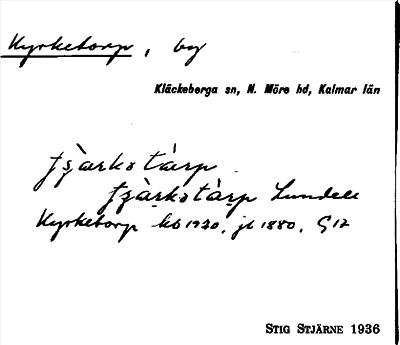 Kyrketorp, by
Kläckeberga sn, N. Möre hd, Kalmar län
tʂàrkətàrp
tʂàrkətàrp Lundell
Kyrketorp kb 1920, jb 1880, G12
STIG STJÄRNE 1936